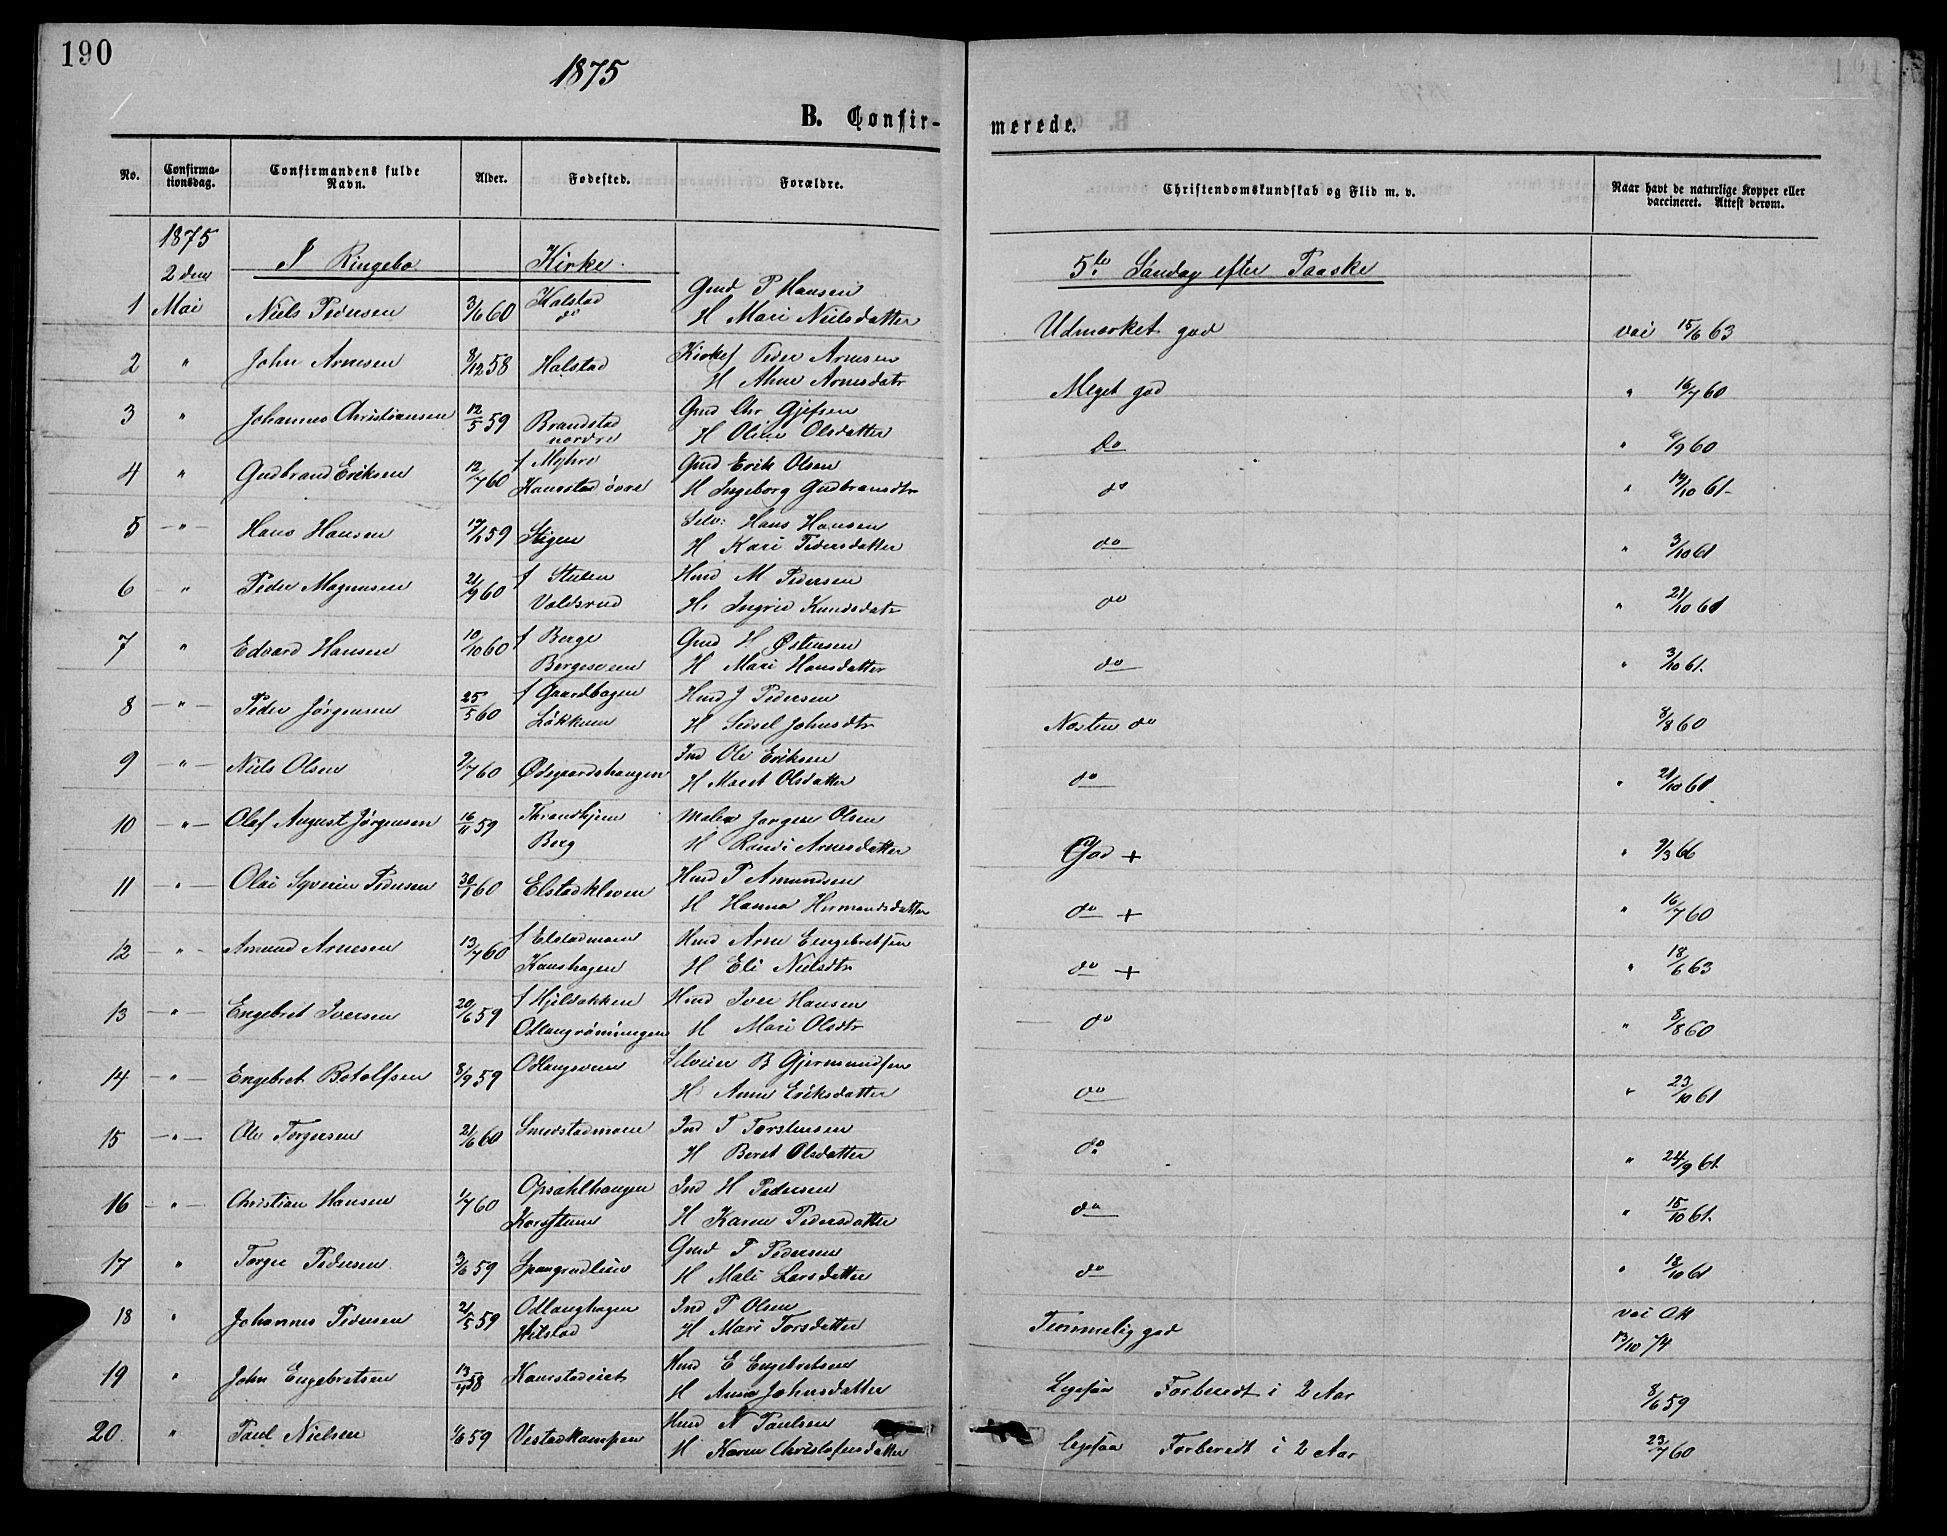 190
1875
B. Confirmerede.
No. Confirmationsdag. Confirmandens fulde Navn. Alder. Fødested. Forældre. Christendomskundskab og Flid m. v. Naar havt de naturlige Kopper eller vaccineret. Attest derom.
1875
2den I Ringebo Kirke. 5te Søndag efter Paaske
1 Mai Niels Pedersen 3/6 60 Kalstad Gmd P Hansen
do H Mari Nielsdatter Udmærket god vai 15/6 63
2 " John Arnesen 8/12 58 Halstad Kirkes Peder Arnesen
H Ahne Arnesdatr Meget god " 16/7 60
3 " Johannes Christiansen 12/5 59 Brandstad Gmd Chr Gjefsen
nordre H Oline Olsdatter Do " 6/9 60
4 " Gudbrand Eriksen 12/7 60 f Myhre Gmd Erik Olsen
Kanstad övre H Ingeborg Gudbransdtr do " 14/10 61
5 " Hans Hansen 17/1 59 Stigen Selv: Hans Hansen
H Kari Pedersdatter do " 3/10 61
6 " Peder Magnusen 21/9 60 f Stulen Hmd M Pedersen
Voldsrud H. Ingrid Knudsdatr do " 21/10 61
7 " Edvard Hansen 10/10 60 f Berge Gmd H. Østensen
Bergesveen H Mari Hansdatter do " 3/10 61.
8 " Peder Jørgensen 25/5 60 f Gaardbagen Hmd J Pedersen
Løkkum H Sidsel Johnsdtr Næsten do 8/8 60
9 " Niels Olsen 2/7 60 Ødegaardshaugen Ind Ole Eriksen
H Marit Olsdatter do " 21/10 61
10 " Olaf August Jørgensen 16/11 59 Throndhjem Maler Jørgen Olsen
Berg H Randi Arnesdatter God + " 9/3 66
11 " Olai Syverin Pedersen 30/1 60 Elstadkleven Hmd P Amundsen
H Hanna Hermandsdatter do + " 16/7 60
12 " Amund Arnesen 13/7 60 f Elstadmoen Hmd Arne Engebretsen
Kaushagen H Eli Nielsdtr do + " 18/6 63
13 " Engebret Iversen 20/6 59 f Hjeldakken Hmd Iver Hansen
Odlangröiningen H Mari Olsdtr do " 8/8 60
14 " Engebret Botolfsen 8/9 59 Odlangsveen Selveier B Gjermundsen
H Anne Eriksdatter do " 23/10 61
15 " Ole Torgersen 21/6 60 Smedstadmoen Ind T Torstensen
H Beret Olsdatter do " 24/9 61.
16 " Christian Hansen 1/7 60 Opsahlhaugen Ind H Pedersen
H Karen Pedersdatter do " 15/10 61.
17 " Torger Pedersen 3/6 59 Spangrudlien Gmd P Pedersen
H Mali Larsdatter do " 18/10 61
18 " Johannes Pedersen 21/5 59 Odlanghagen Ind P Olsen vai Att
Hilstad H Mari Torsdatter Temmelig god 13/10 74
19 " John Engebretsen 13/4 58 Kanstadeiet Hmd E Engebretsen
H Anna Johnsdatter Ligesaa Forberedt i 2 Aar 8/6 59
20. " Paul Nielsen 1/6 59 Vestadkampen Hmd N Paulsen
H Karen Christofersdatter Ligesaa Forberedt i 2 Aar 23/7 60